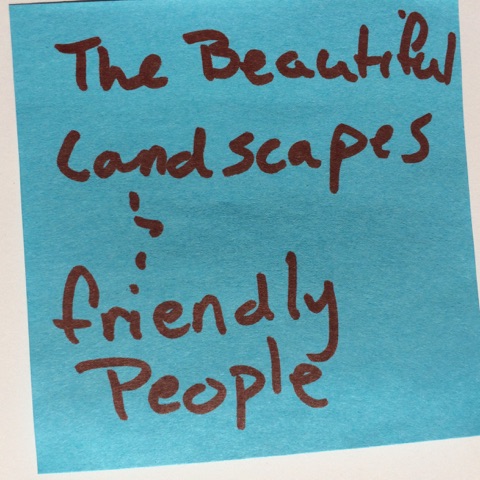 The Beautiful
Landscapes
&
friendly
People